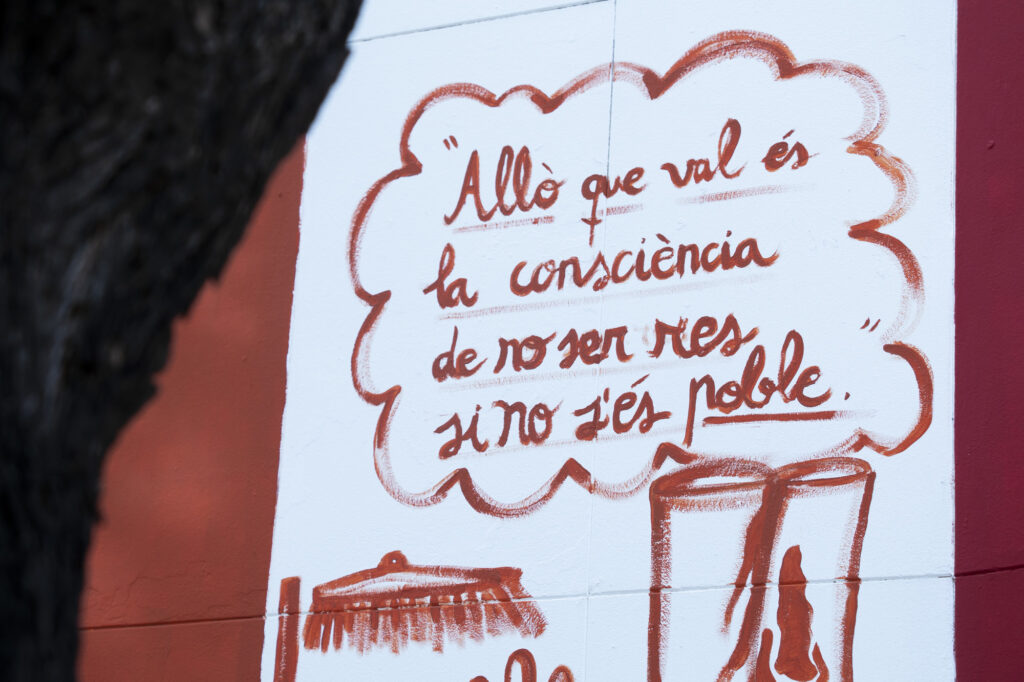 "Allò que val és
la consciència
de no ser res
si no s'és poble."